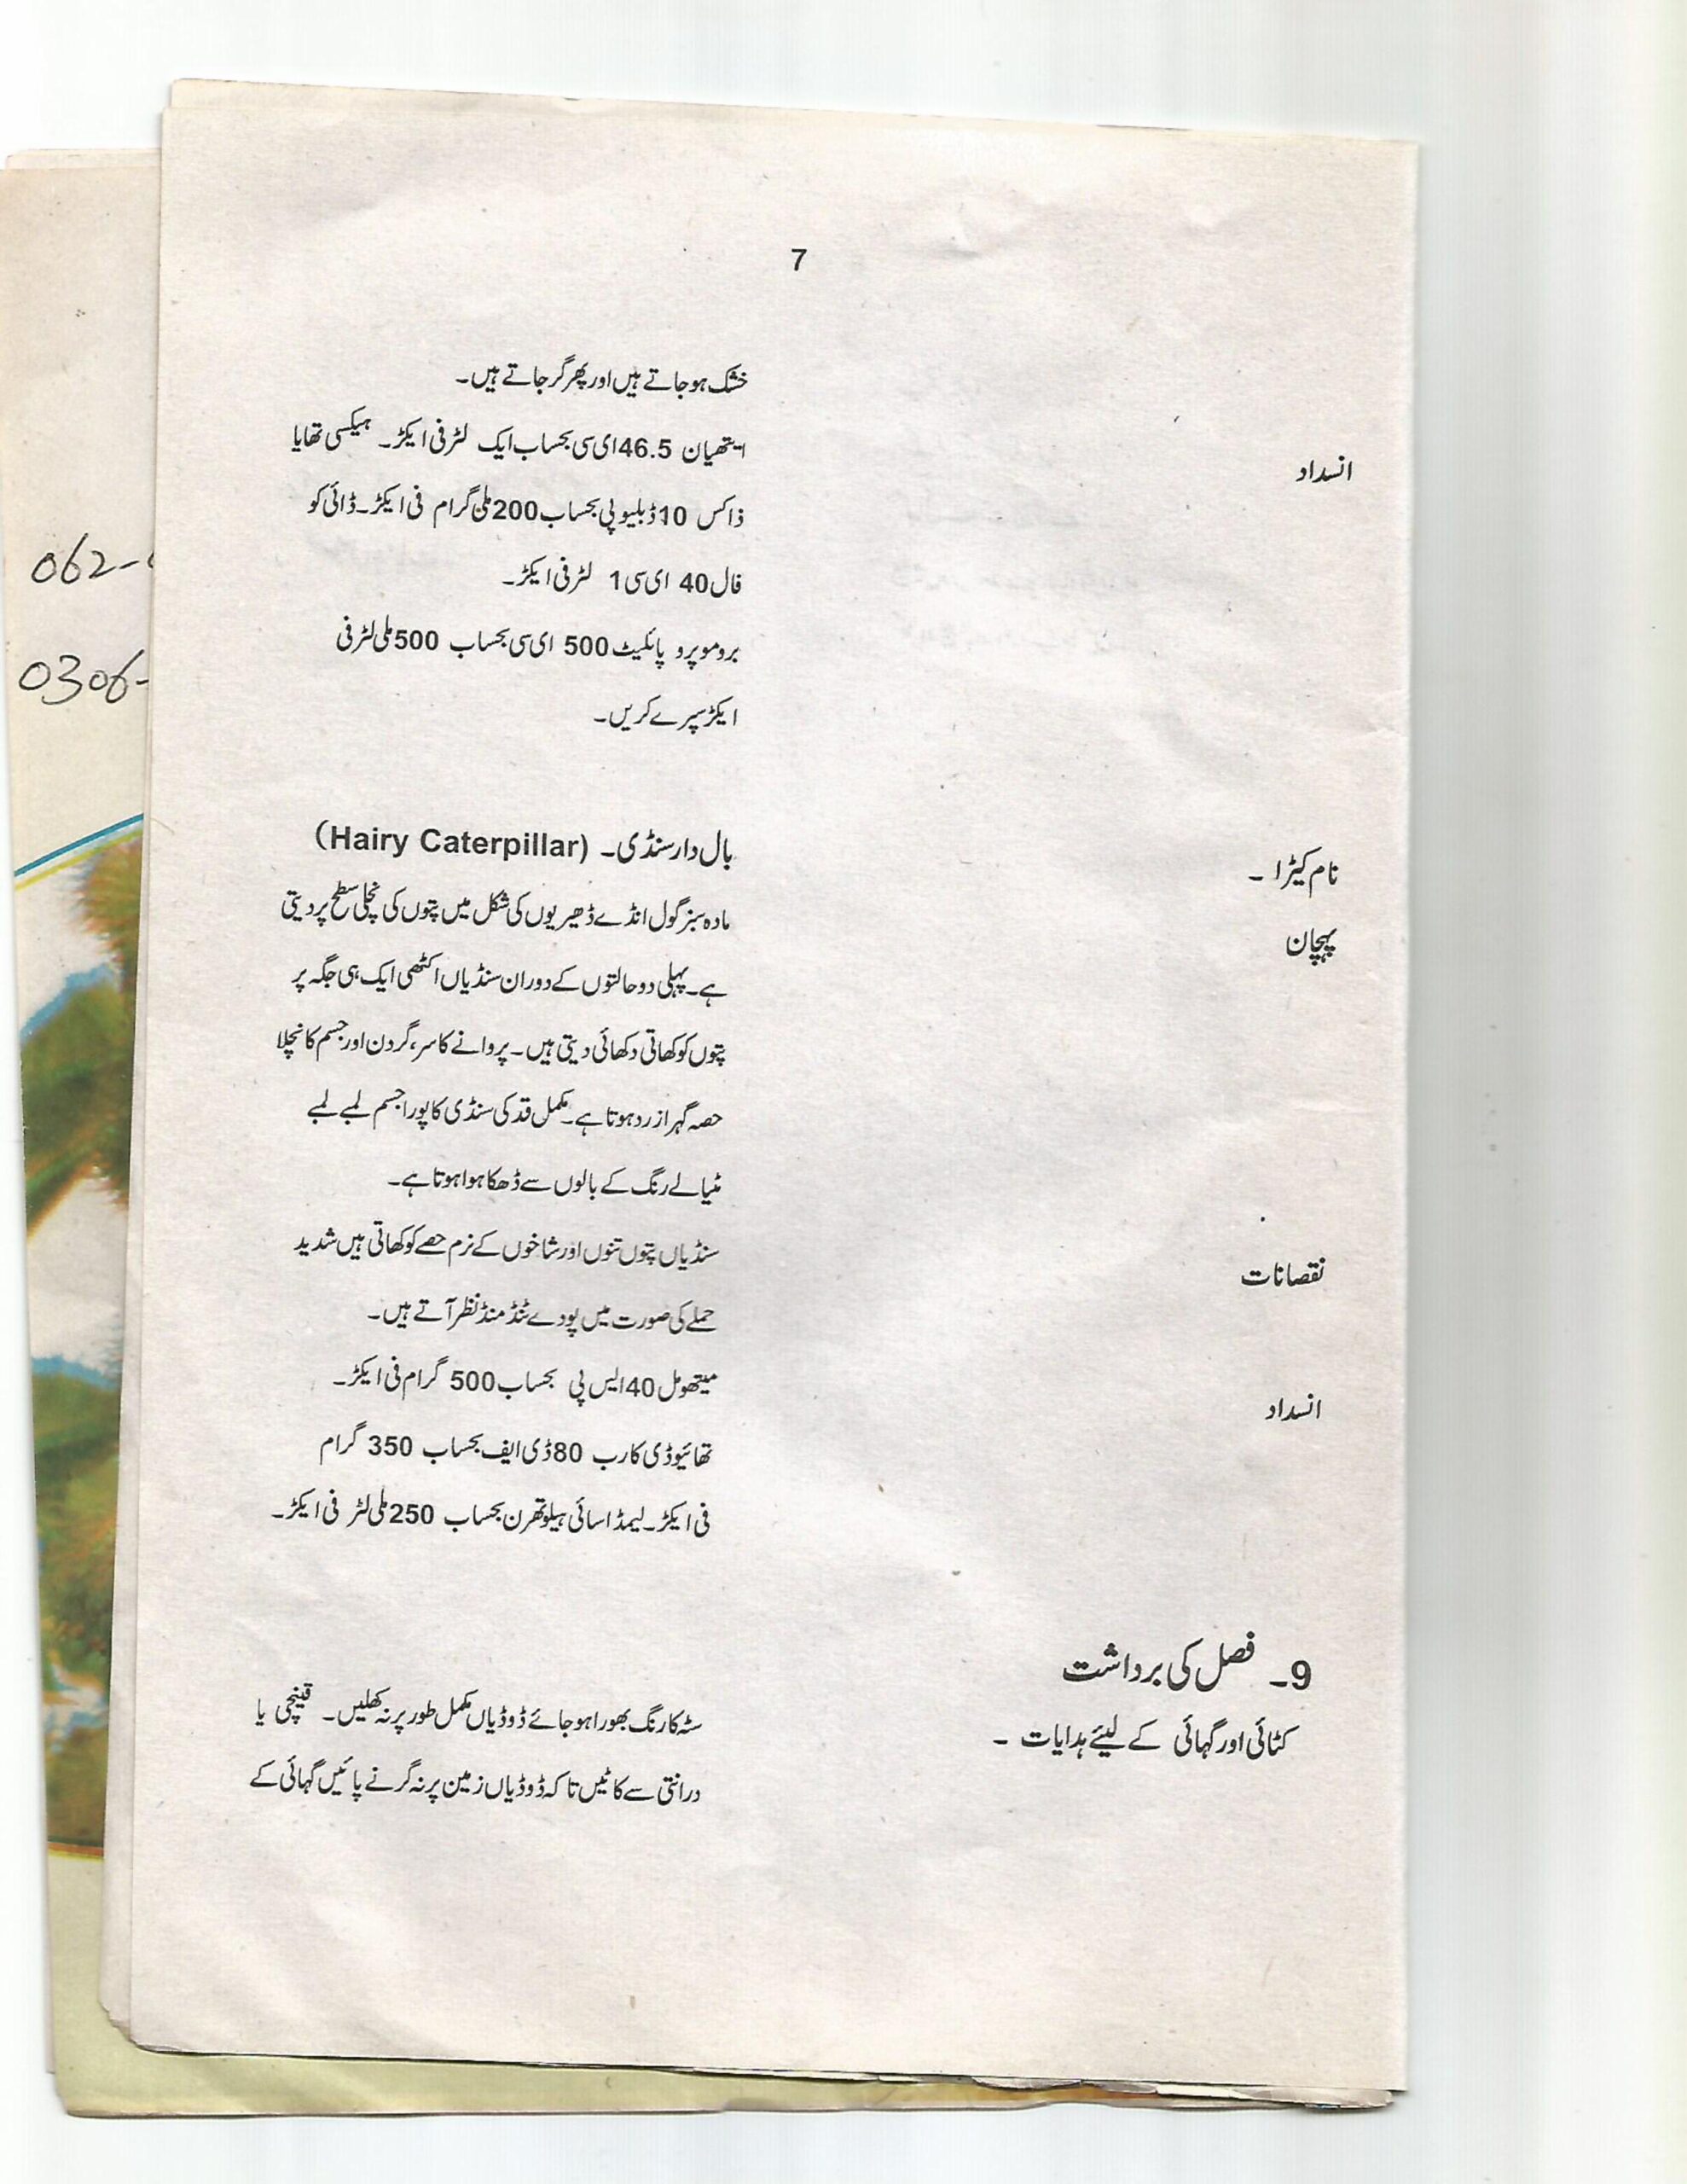 7
خشک ہو جاتے ہیں اور پھر گر جاتے ہیں۔
انسداد
ایتھیان 46.5 ای سی بحساب ایک لٹر فی ایکڑ۔ ہیکسی تھایا
ذاکس 10 ڈبلیو پی بحساب 200 ملی گرام فی ایکڑ۔ ڈائی کو
فال 40 ای سی 1 لٹر فی ایکڑ۔
بروموپرو پائلیٹ 500 ای سی بحساب 500 ملی لٹر فی
ایکڑ سپرے کریں۔
نام کیڑا ۔
بال دار سنڈی۔ (Hairy Caterpillar)
پہچان
مادہ سبز گول انڈے ڈھیریوں کی شکل میں پتوں کی نچلی سطح پر دیتی
ہے۔ پہلی دو حالتوں کے دوران سنڈیاں اکٹھی ایک ہی جگہ پر
پتوں کو کھاتی دکھائی دیتی ہیں۔ پروانے کا سر، گردن اور جسم کا نچلا
حصہ گہرا زرد ہوتا ہے۔ مکمل قد کی سنڈی کا پورا جسم لمبے لمبے
مٹیالے رنگ کے بالوں سے ڈھکا ہوا ہوتا ہے۔
نقصانات
سنڈیاں پتوں تنوں اور شاخوں کے نرم حصے کو کھاتی ہیں شدید
حملے کی صورت میں پودے ٹنڈ منڈ نظر آتے ہیں۔
انسداد
میتھومل 40 ایس پی بحساب 500 گرام فی ایکڑ۔
تھائیوڈی کارب 80 ڈی ایف بحساب 350 گرام
فی ایکڑ۔ لیمڈا سائی ہیلوتھرن بحساب 250 ملی لٹر فی ایکڑ۔
9۔ فصل کی برداشت
کٹائی اور گہائی کے لیئے ہدایات ۔
سٹہ کا رنگ بھورا ہو جائے ڈوڈیاں مکمل طور پر نہ کھلیں۔ قینچی یا
درانتی سے کاٹیں تاکہ ڈوڈیاں زمین پر نہ گرنے پائیں گہائی کے
062-
0306-